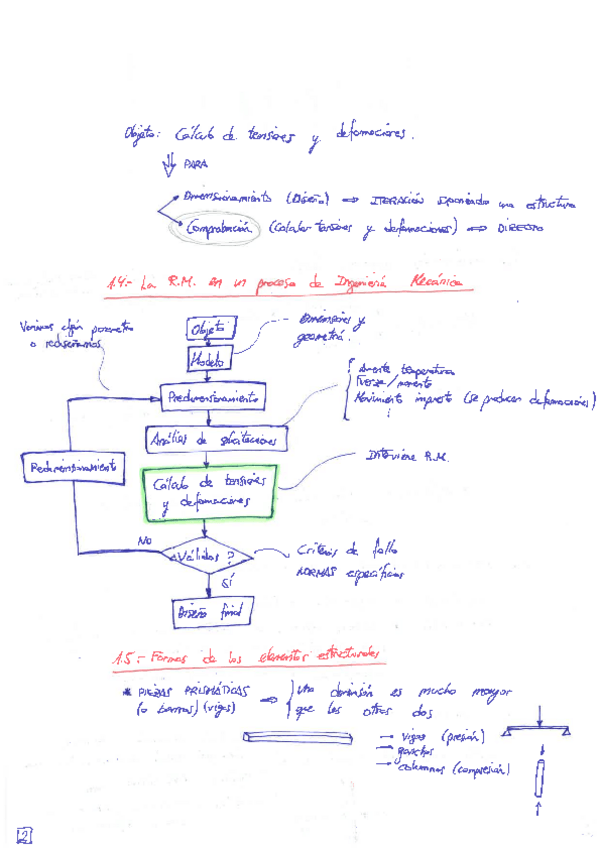 Objeto: Cálculo de tensiones y deformaciones.
PARA
Dimensionamiento (Diseño) ⇒ ITERACIÓN suponiendo una estructura
Comprobación (Calcular tensiones y deformaciones) ⇒ DIRECTO
1.4.- La R.M. en un proceso de Ingeniería Mecánica
Variamos algún parámetro
o rediseñamos
Objeto
Dimensiones y
geometría.
Modelo
Predimensionamiento
Aumento temperatura
Fuerza/momento
Movimiento impuesto (se producen deformaciones)
Análisis de solicitaciones
Redimensionamiento
Cálculo de tensiones
y deformaciones
Interviene R.M.
No
¿Válidos?
Criterio de fallo
NORMAS específicas
SÍ
Diseño final
1.5.- Formas de los elementos estructurales
* PIEZAS PRISMÁTICAS ⇒ Una dimensión es mucho mayor
(o barras) (vigas) que las otras dos
→ vigas (presión)
→ ganchos
→ columnas (compresión)
2